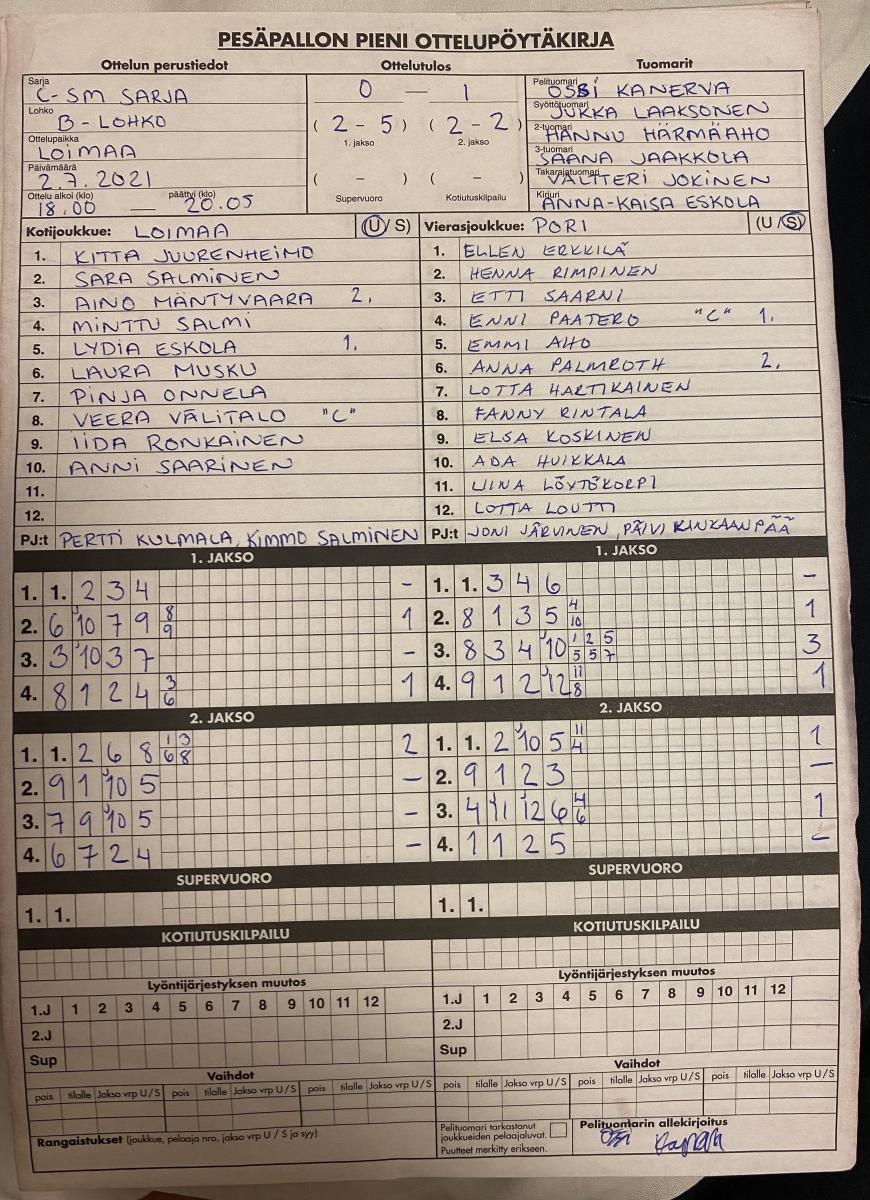 PESÄPALLON PIENI OTTELUPÖYTÄKIRJA
Ottelun perustiedot Ottelutulos Tuomarit
Sarja C-SM SARJA
Lohko B-LOHKO
Ottelupaikka LOIMAA
Päivämäärä 2.7.2021
Ottelu alkoi (klo) 18.00 — päättyi (klo) 20.05
0 — 1
(2 - 5) (2 - 2)
1. jakso 2. jakso
( - ) ( - )
Supervuoro Kotiutuskilpailu
Pelituomari OSSI KANERVA
Syöttötuomari JUKKA LAAKSONEN
2-tuomari HANNU HÄRMÄAHO
3-tuomari SAANA JAAKKOLA
Takarajatuomari VALTTERI JOKINEN
Kirjuri ANNA-KAISA ESKOLA
Kotijoukkue: LOIMAA (U/S)
1. KITTA JUURENHEIMO
2. SARA SALMINEN
3. AINO MÄNTYVAARA 2.
4. MINTTU SALMI
5. LYDIA ESKOLA 1.
6. LAURA MUSKU
7. PINJA ONNELA
8. VEERA VÄLITALO "C"
9. IIDA RONKAINEN
10. ANNI SAARINEN
11.
12.
PJ:t PERTTI KULMALA, KIMMO SALMINEN
Vierasjoukkue: PORI (U/S)
1. ELLEN ERKKILÄ
2. HENNA RIMPINEN
3. ETTI SAARNI
4. ENNI PAATERO "C" 1.
5. EMMI AHO
6. ANNA PALMROTH 2.
7. LOTTA HARTIKAINEN
8. FANNY RINTALA
9. ELSA KOSKINEN
10. ADA HUIKKALA
11. LIINA LÖYTÖKORPI
12. LOTTA LOUTTI
PJ:t JONI JÄRVINEN, PÄIVI KINKAANPÄÄ
1. JAKSO
1. 1. 2 3 4 -
2. 6 J10 7 9 8/9 1
3. 3 J10 3 7 -
4. 8 1 2 4 3/6 1
1. JAKSO
1. 1. 3 4 6 -
2. 8 1 3 5 4/10 1
3. 8 3 4 J10 1/5 2/5 5/7 3
4. 9 1 2 J12 11/8 1
2. JAKSO
1. 1. 2 6 8 1/6 3/8 2
2. 9 1 J10 5 -
3. 7 9 J10 5 -
4. 6 7 2 4 -
2. JAKSO
1. 1. 2 J10 5 11/4 1
2. 9 1 2 3 -
3. 4 J11 J12 6 4/6 1
4. 1 1 2 5 -
SUPERVUORO
1. 1.
SUPERVUORO
1. 1.
KOTIUTUSKILPAILU
KOTIUTUSKILPAILU
Lyöntijärjestyksen muutos
1.J 1 2 3 4 5 6 7 8 9 10 11 12
2.J
Sup
Lyöntijärjestyksen muutos
1.J 1 2 3 4 5 6 7 8 9 10 11 12
2.J
Sup
Vaihdot
pois tilalle Jakso vrp U/S pois tilalle Jakso vrp U/S pois tilalle Jakso vrp U/S
Vaihdot
pois tilalle Jakso vrp U/S pois tilalle Jakso vrp U/S pois tilalle Jakso vrp U/S
Rangaistukset (joukkue, pelaaja nro, jakso vrp U/S ja syy)
Pelituomari tarkastanut
joukkueiden pelaajaluvat.
Puutteet merkitty erikseen.
Pelituomarin allekirjoitus